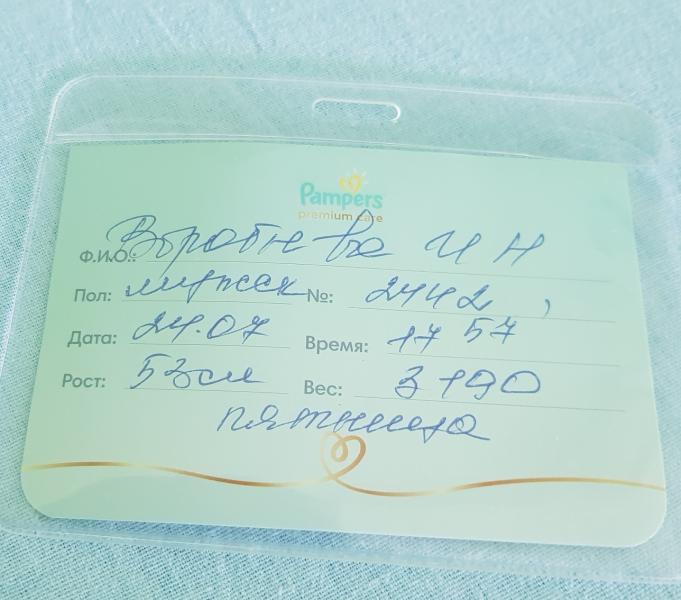 Pampers
premium care
Ф.И.О.: Воробьева И Н
Пол: мужск №: 2442,
Дата: 24.07 Время: 17 57
Рост: 53см Вес: 3190
пятница